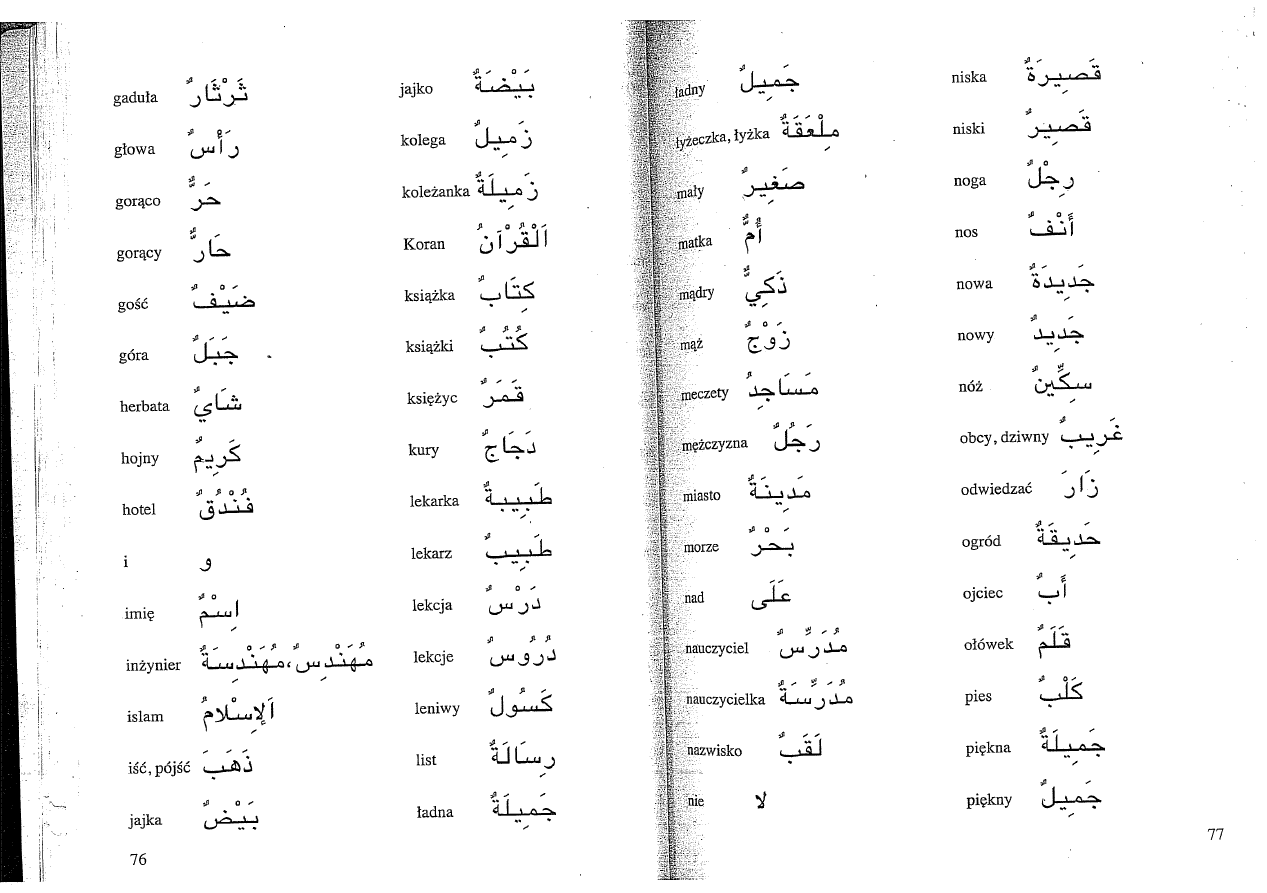 gaduła ثَرْثَارٌ
głowa رَأْسٌ
gorąco حَرٌّ
gorący حَارٌّ
gość ضَيْفٌ
góra جَبَلٌ
herbata شَايٌ
hojny كَرِيمٌ
hotel فُنْدُقٌ
i و
imię اِسْمٌ
inżynier مُهَنْدِسٌ، مُهَنْدِسَةٌ
islam اَلإِسْلامُ
iść, pójść ذَهَبَ
jajka بَيْضٌ
76
jajko بَيْضَةٌ
kolega زَمِيلٌ
koleżanka زَمِيلَةٌ
Koran اَلْقُرْآنُ
książka كِتَابٌ
książki كُتُبٌ
księżyc قَمَرٌ
kury دَجَاجٌ
lekarka طَبِيبةٌ
lekarz طَبِيبٌ
lekcja دَرْسٌ
lekcje دُرُوسٌ
leniwy كَسُولٌ
list رِسَالَةٌ
ładna جَمِيلَةٌ
ładny جَمِيلٌ
łyżeczka, łyżka مِلْعَقَةٌ
mały صَغِيرٌ
matka أُمٌّ
mądry ذَكِيٌّ
mąż زَوْجٌ
meczety مَسَاجِدُ
mężczyzna رَجُلٌ
miasto مَدِينَةٌ
morze بَحْرٌ
nad عَلَى
nauczyciel مُدَرِّسٌ
nauczycielka مُدَرِّسَةٌ
nazwisko لَقَبٌ
nie لا
niska قَصِيرَةٌ
niski قَصِيرٌ
noga رِجْلٌ
nos أَنْفٌ
nowa جَدِيدَةٌ
nowy جَدِيدٌ
nóż سِكِّينٌ
obcy, dziwny غَرِيبٌ
odwiedzać زَارَ
ogród حَدِيقَةٌ
ojciec أَبٌ
ołówek قَلَمٌ
pies كَلْبٌ
piękna جَمِيلَةٌ
piękny جَمِيلٌ
77